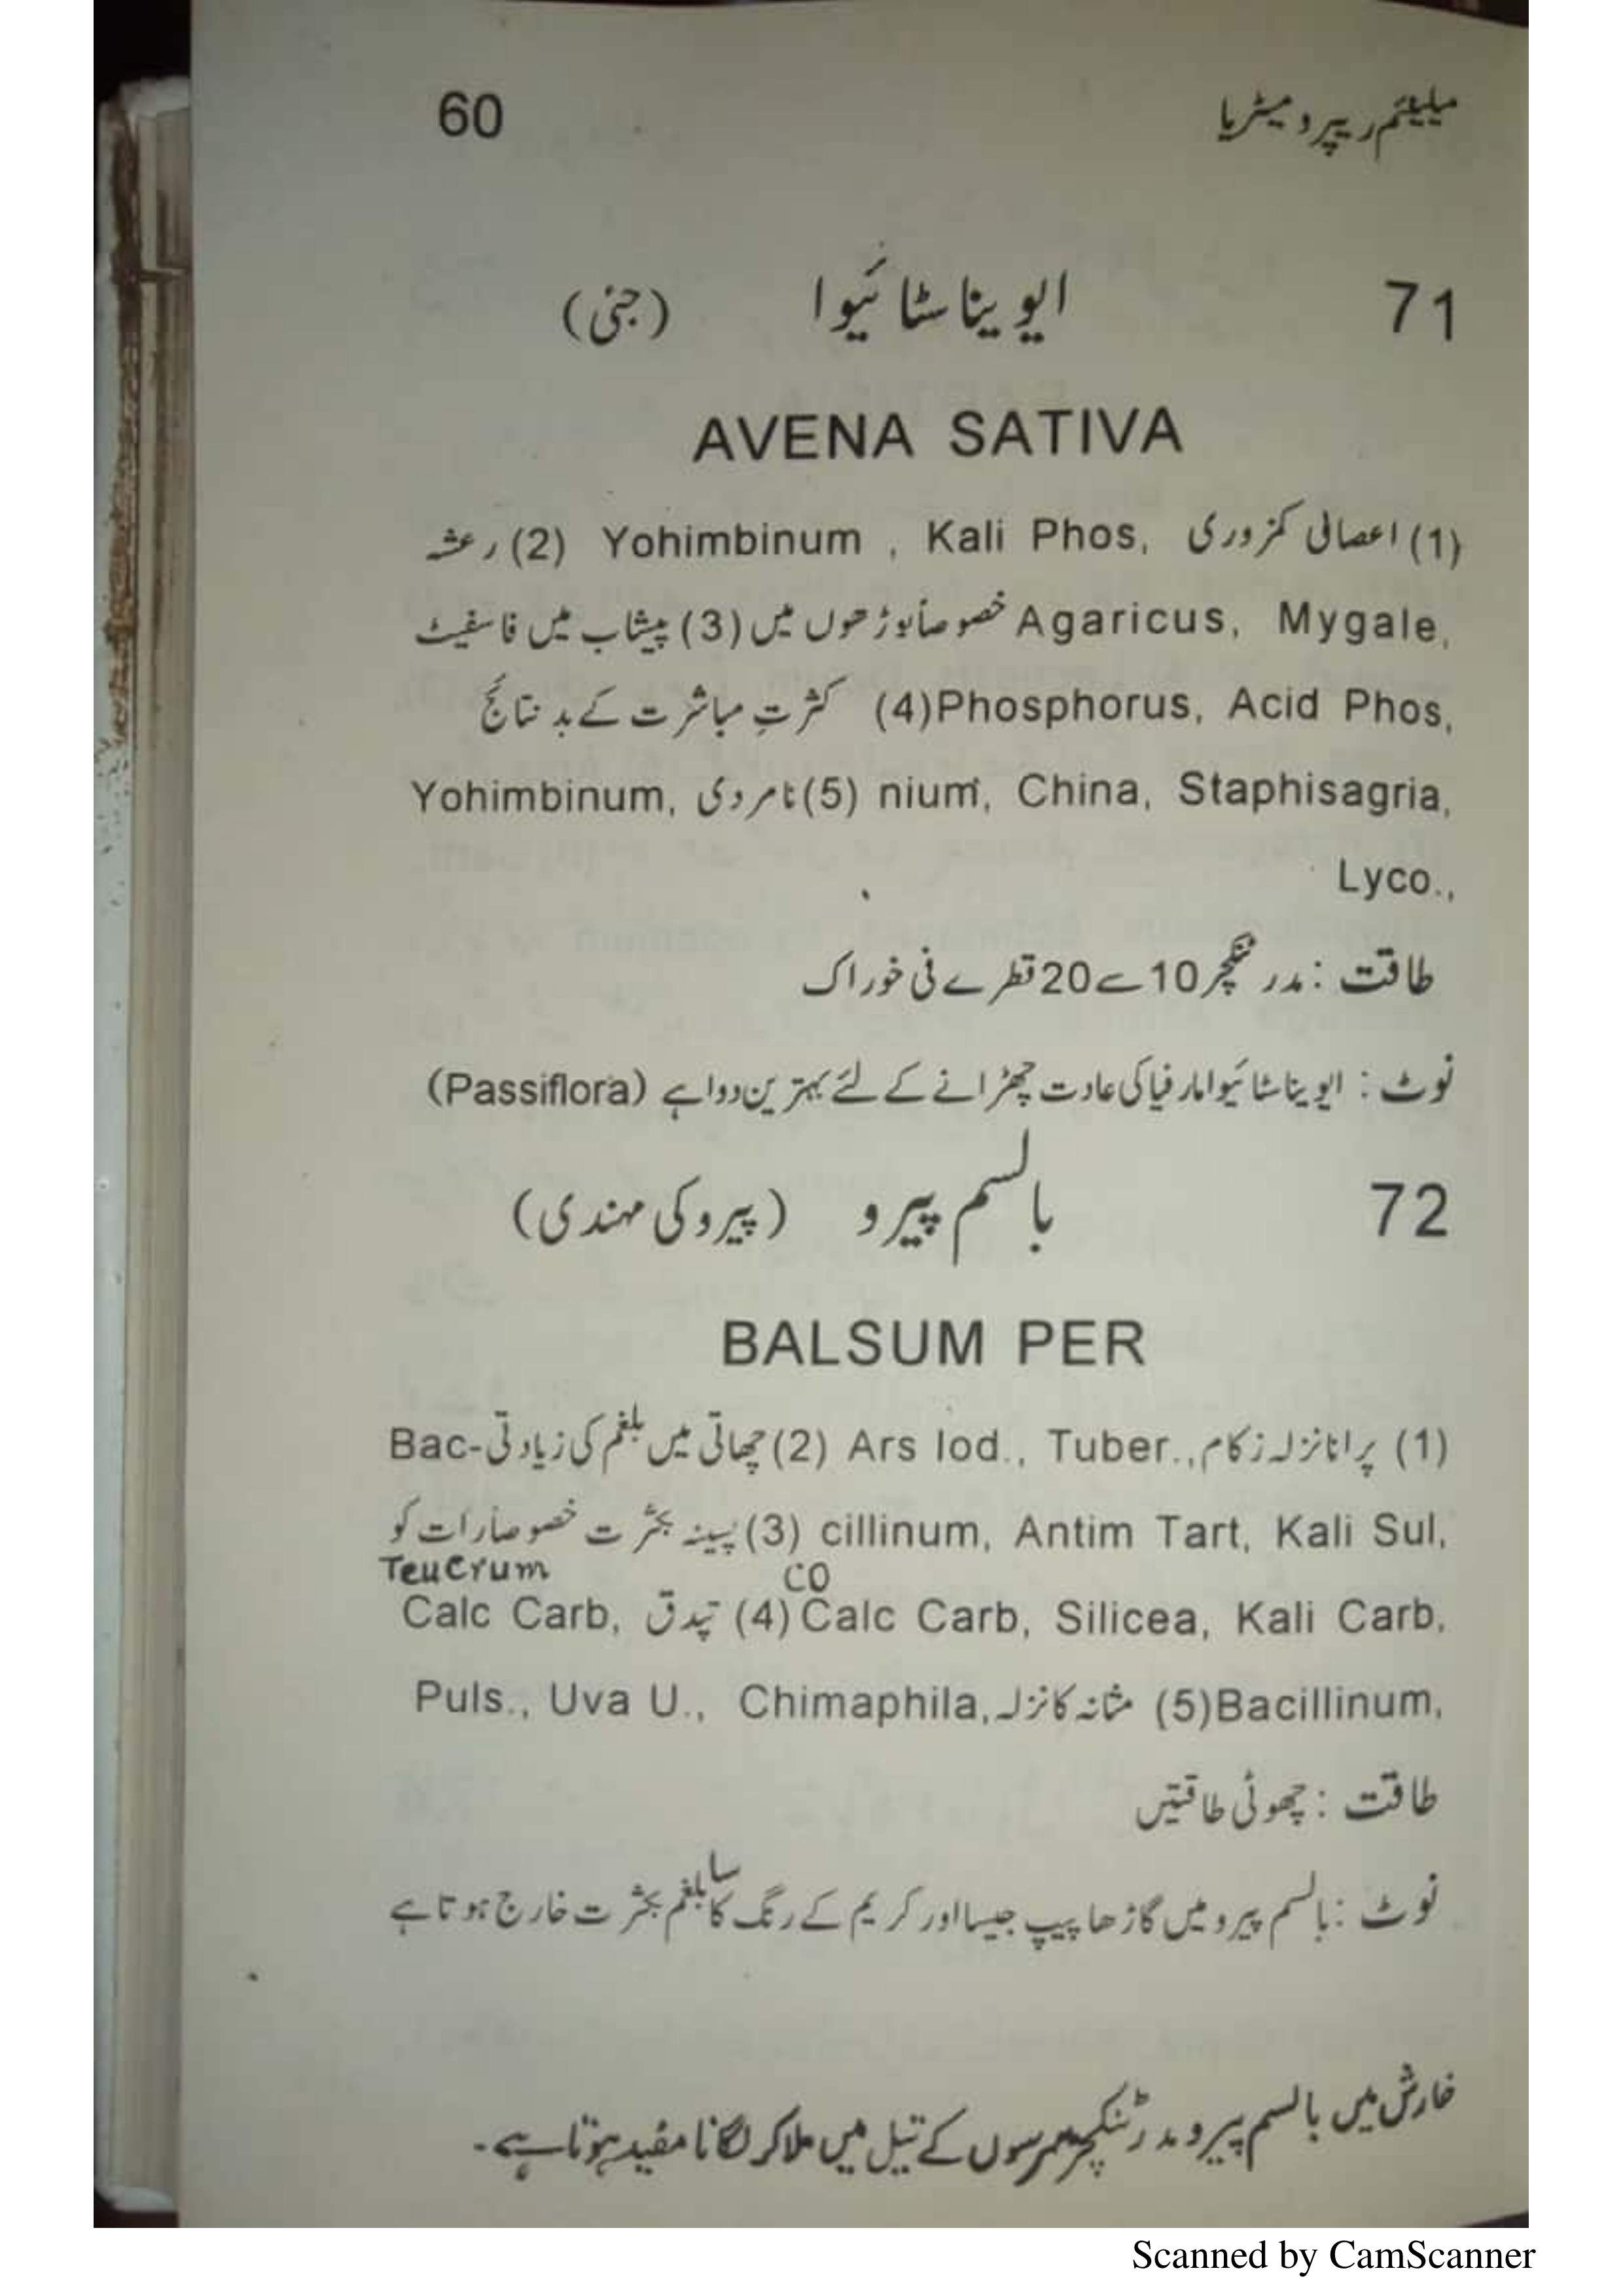 میلینیم ریپرو میٹریا 60
71 ایویناسٹائیوا (جئی)
AVENA SATIVA
(1) اعصابی کمزوری Yohimbinum , Kali Phos, (2) رعشہ
Agaricus, Mygale, خصوصاً بوڑھوں میں (3) پیشاب میں فاسفیٹ
Phosphorus, Acid Phos, (4) کثرتِ مباشرت کے بد نتائج
nium, China, Staphisagria, (5) نامردی Yohimbinum,
Lyco.,
طاقت : مدر ٹنکچر 10 سے 20 قطرے فی خوراک
نوٹ : ایویناسٹائیوا مارفیا کی عادت چھڑانے کے لئے بہترین دوا ہے (Passiflora)
72 بالسم پیرو (پیرو کی مہندی)
BALSUM PER
(1) پرانا نزلہ زکام Ars Iod., Tuber., (2) چھاتی میں بلغم کی زیادتی Bac-
cillinum, Antim Tart, Kali Sul, (3) پسینہ بکثرت خصوصاً رات کو
CO Teucrum
Calc Carb, Silicea, Kali Carb, (4) تپدق Calc Carb,
Bacillinum, (5) مثانہ کا نزلہ Puls., Uva U., Chimaphila,
طاقت : چھوٹی طاقتیں
نوٹ : بالسم پیرو میں گاڑھا پیپ جیسا اور کریم کے رنگ کا سا بلغم بکثرت خارج ہوتا ہے
خارش میں بالسم پیرو مدر ٹنکچر سرسوں کے تیل میں ملا کر لگانا مفید ہوتا ہے۔
Scanned by CamScanner